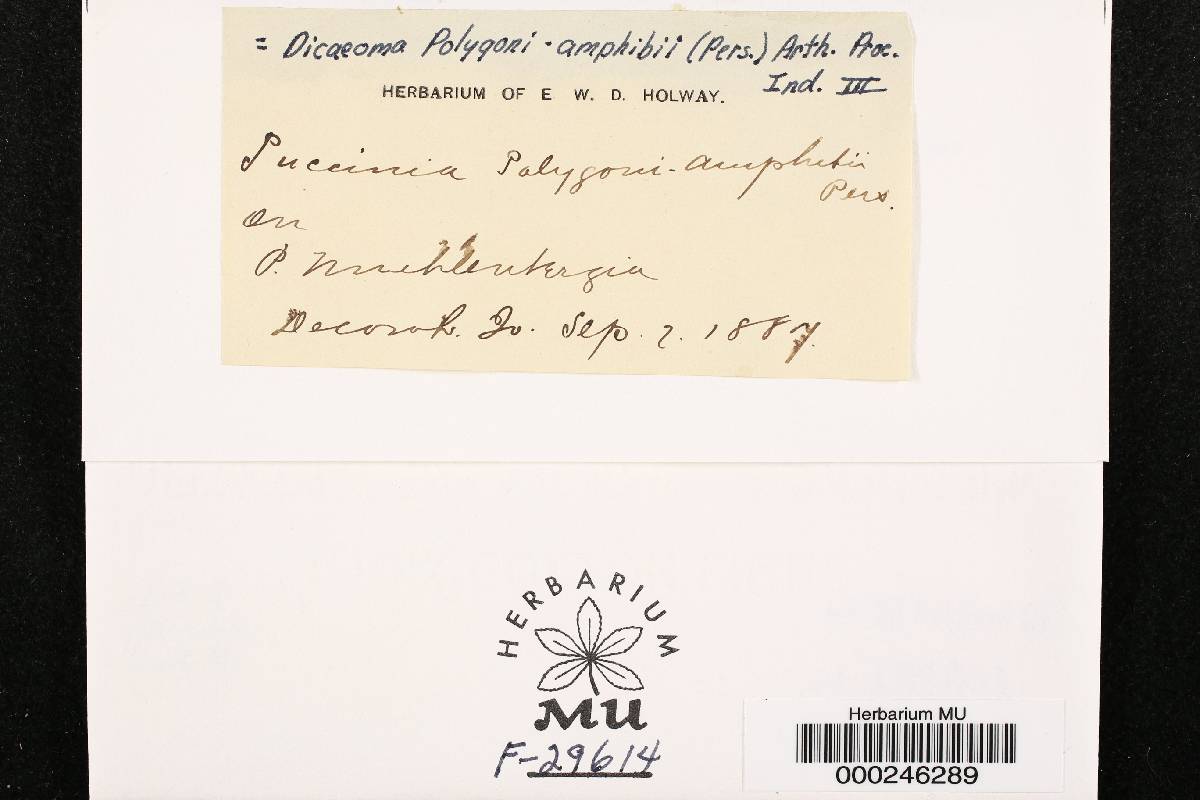 = Dicaeoma Polygoni-amphibii (Pers.) Arth. Proc.
Ind. III
HERBARIUM OF E W. D. HOLWAY.
Puccinia Polygoni-amphibii
Pers.
on
P. Muehlenbergia
Decorah. Io. Sep. 7. 1887.
HERBARIUM
MU
F-29614
Herbarium MU
000246289